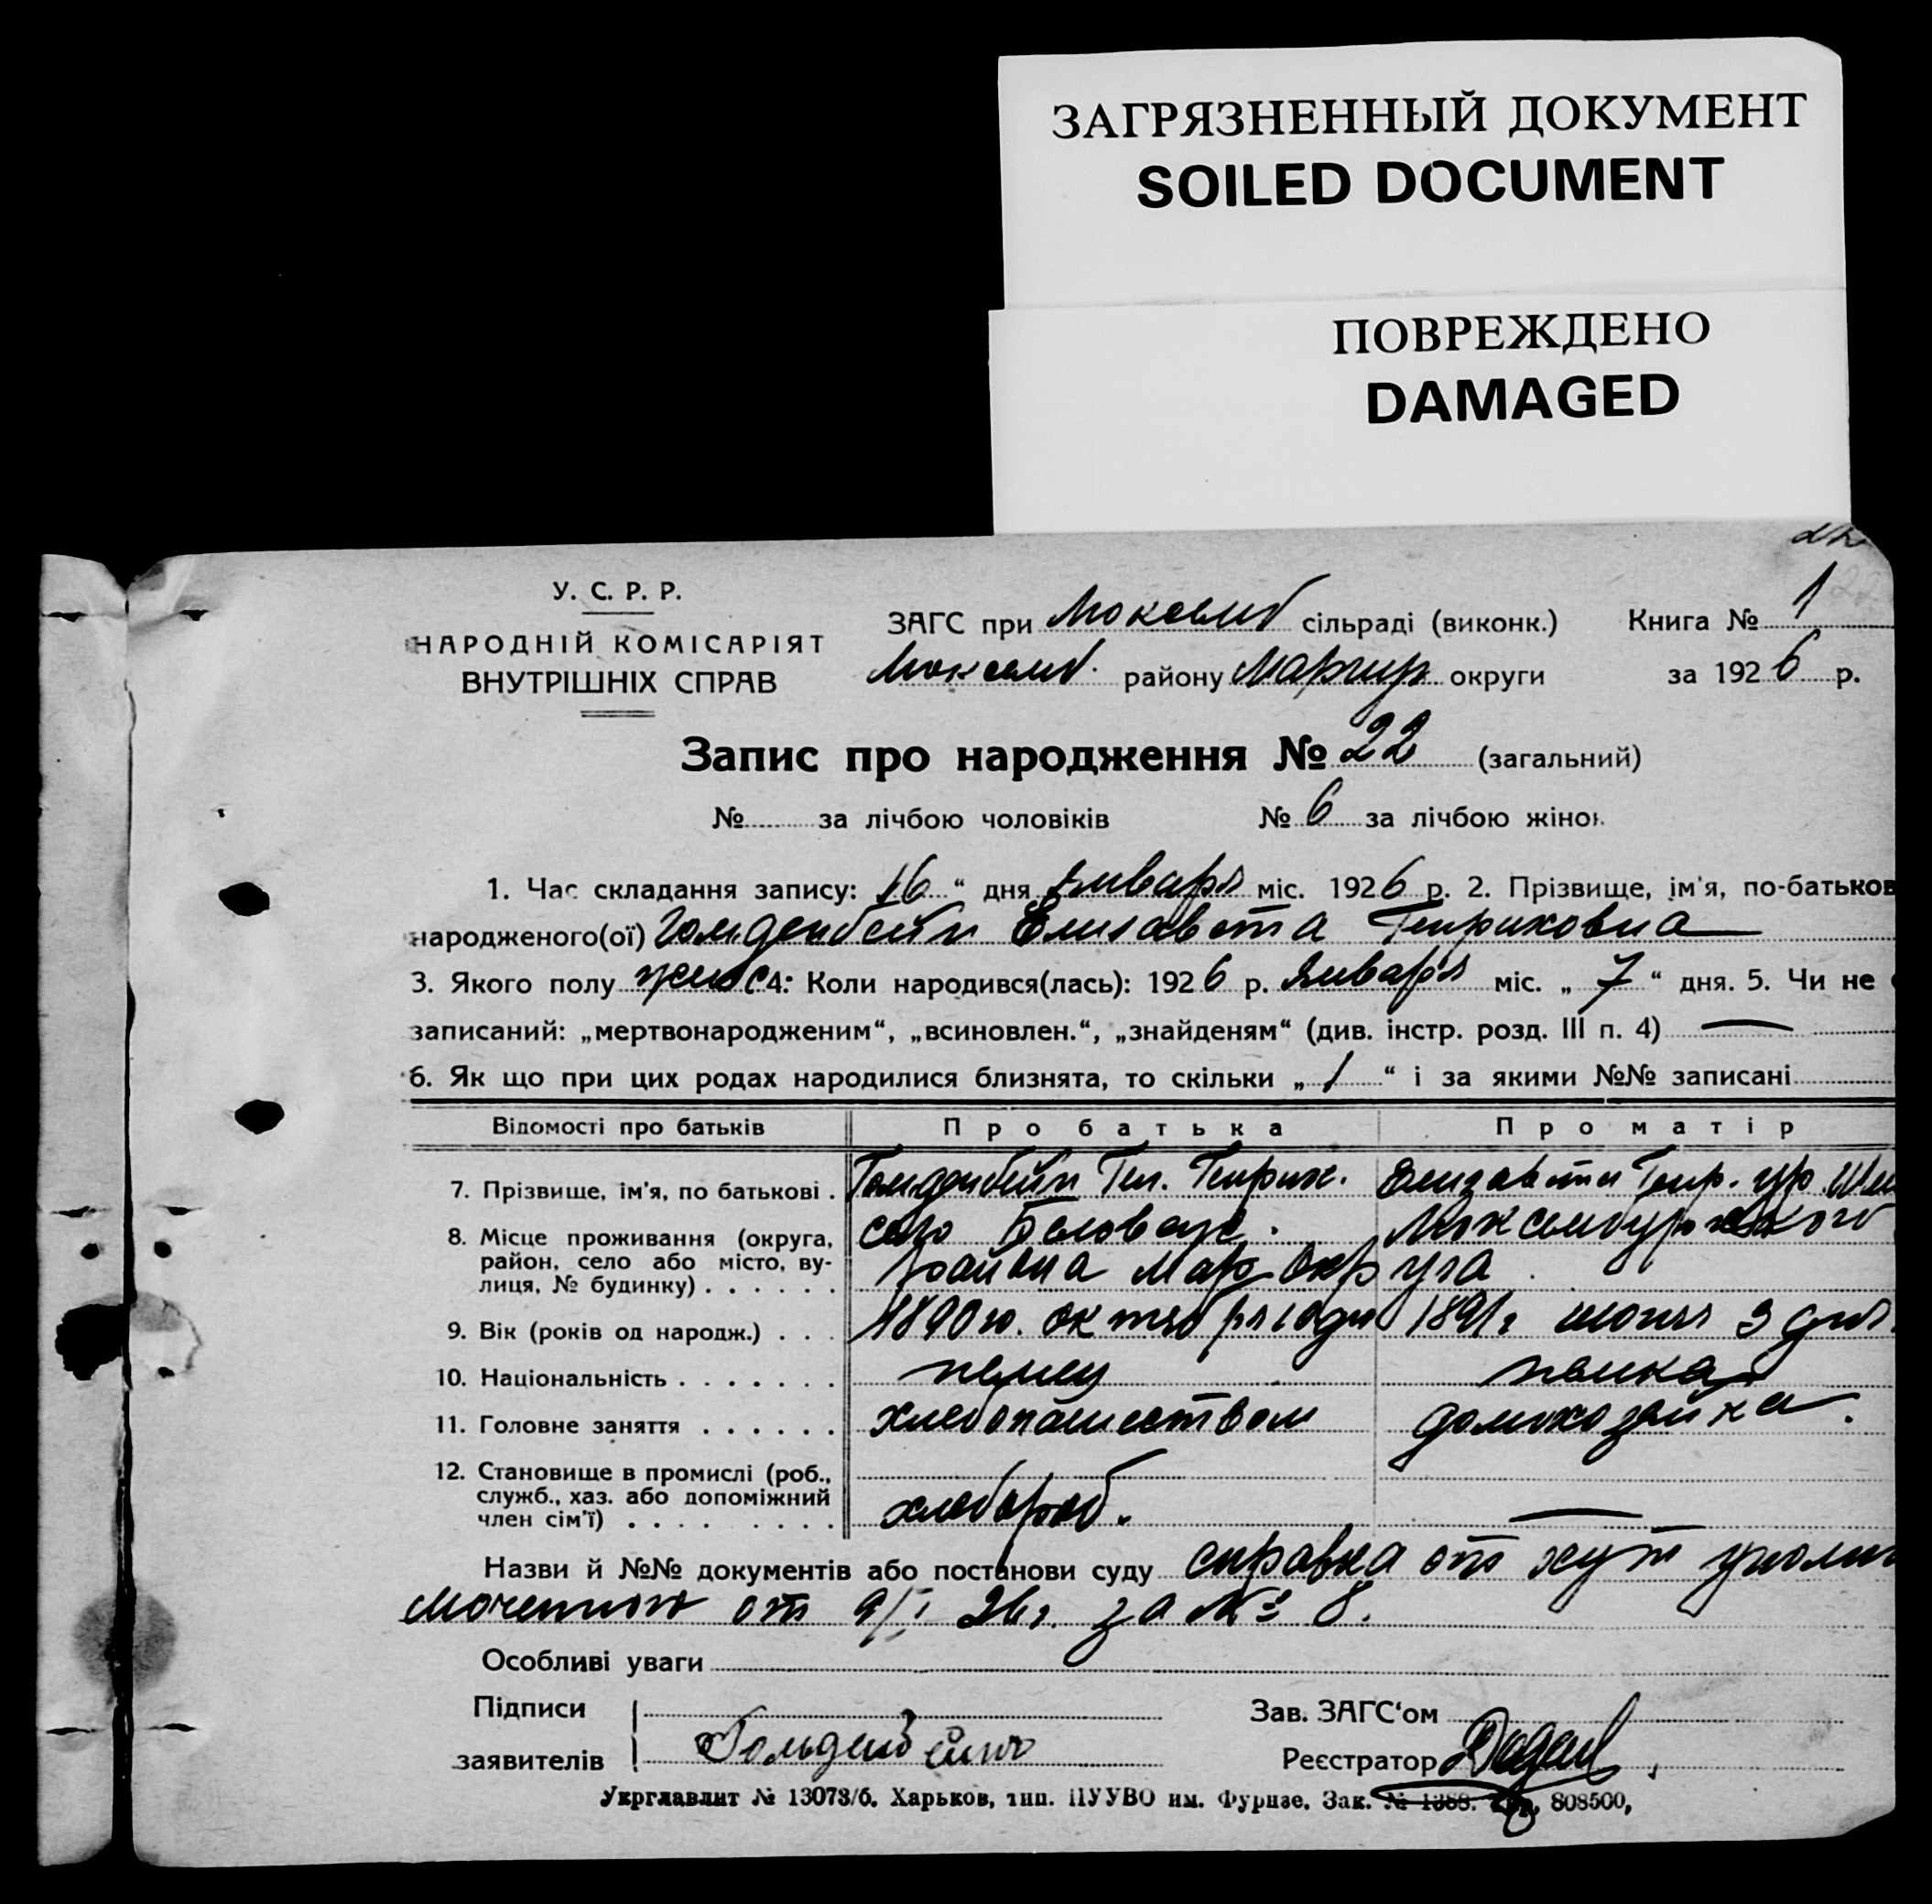 ЗАГРЯЗНЕННЫЙ ДОКУМЕНТ
SOILED DOCUMENT
ПОВРЕЖДЕНО
DAMAGED
У. С. Р. Р.
НАРОДНІЙ КОМІСАРІЯТ
ВНУТРІШНІХ СПРАВ
ЗАГС при сільраді (виконк.) Книга № 1
району Мариуп округи за 1926 р.
Запис про народження № 22 (загальний)
№ за лічбою чоловіків № 6 за лічбою жінок
1. Час складання запису: 16 “ дня января міс. 1926 р. 2. Прізвище, ім'я, по-батьков
народженого(ої) Гольденбейн Елизавета Генриховна
3. Якого полу женс 4. Коли народився(лась): 1926 р. января міс. „ 7 “ дня. 5. Чи не
записаний: „мертвонародженим“, „всиновлен.“, „знайденям“ (див. інстр. розд. III п. 4) —
6. Як що при цих родах народилися близнята, то скільки „ 1 “ і за якими №№ записані
Відомості про батьків Про батька Про матір
7. Прізвище, ім'я, по батькові . Гольденбейн Ген. Генрих. Елизавета Генр. ур.
8. Місце проживання (округа, село
район, село або місто, ву- района Мар Окр уга
лиця, № будинку) . . . . . .
9. Вік (років од народж.) . . . 1890 го. октября 1891 г 3 дня
10. Національність . . . . . . . немец немка
11. Головне заняття . . . . . . хлебопашеством домохозяйка.
12. Становище в промислі (роб.,
служб., хаз. або допоміжний
член сім'ї) . . . . . . . . хлебороб. —
Назви й №№ документів або постанови суду справка от хут уполно
моченного от 9/I 26 г. за № 8.
Особливі уваги
Підписи Зав. ЗАГС'ом
заявителів Гольденбейн Реєстратор
Укрглавлит № 13073/б. Харьков, тип. ПУУВО им. Фрунзе. Зак. № 1388. 808500,